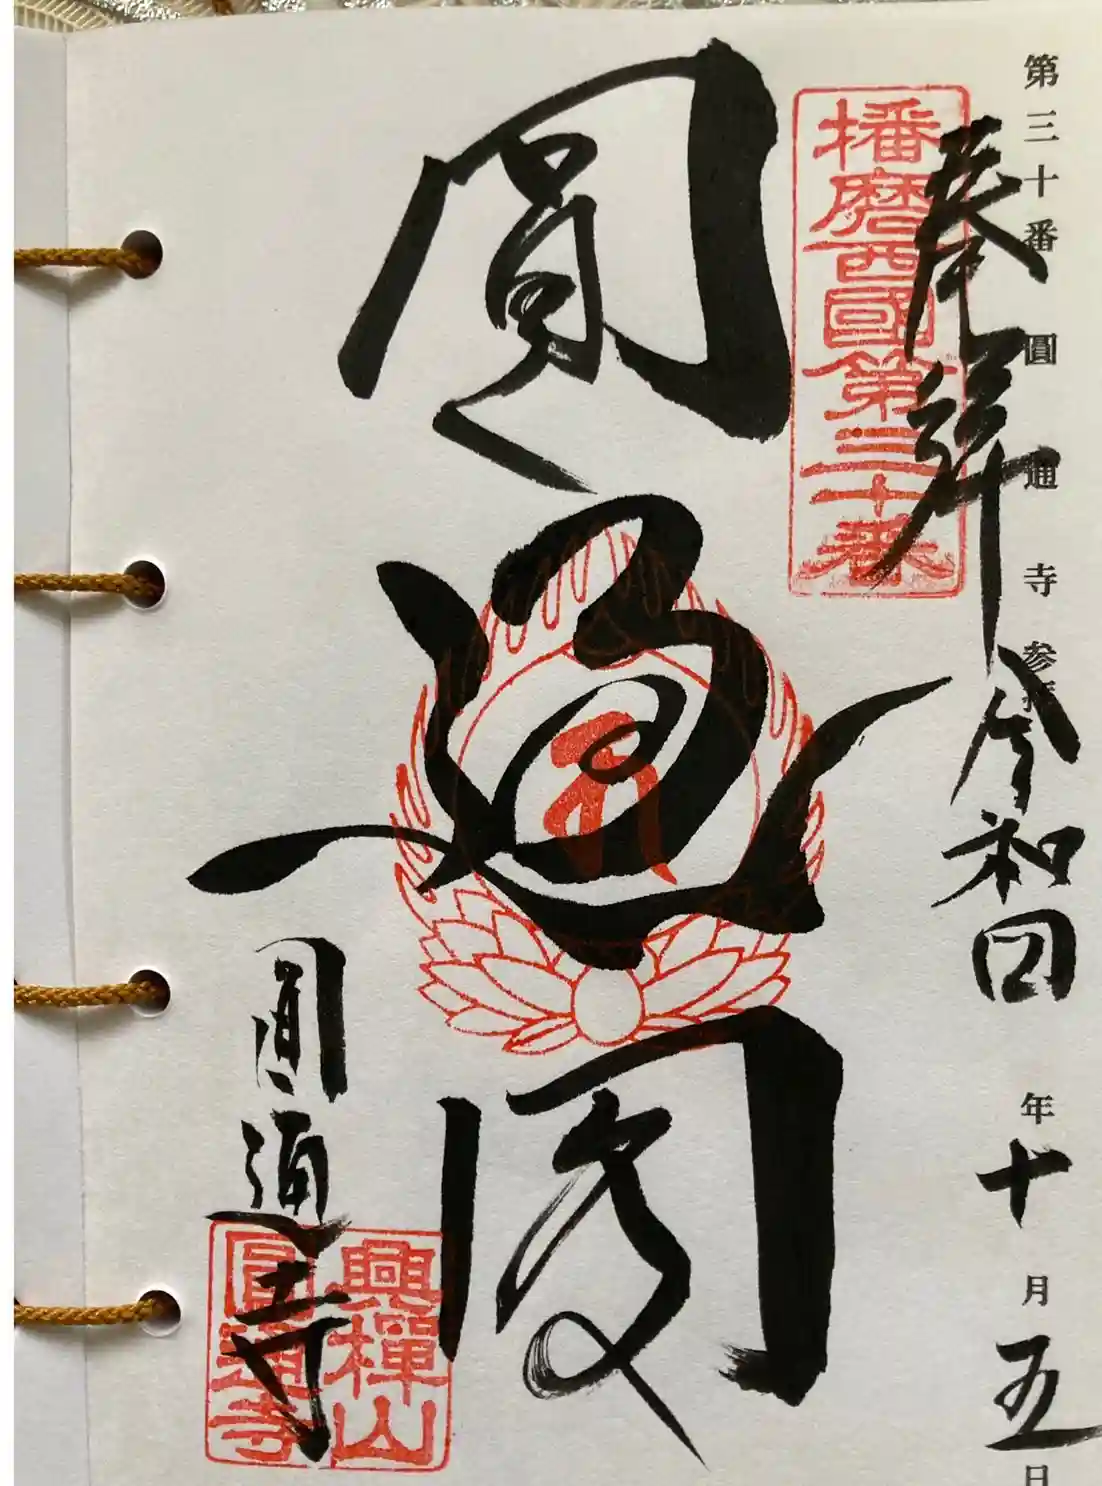 第三十番 圓通寺 参拝
奉拝 令和四年十月五日
播磨西國第三十番
圓通閣
圓通寺
興禅山
圓通寺